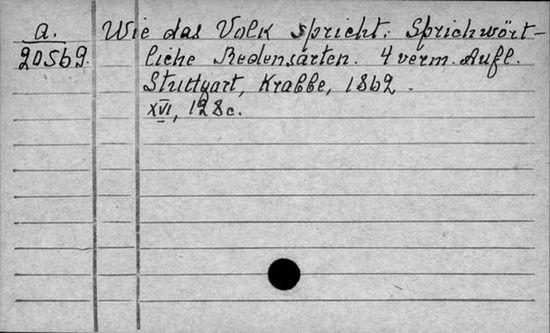 a. Wie das Volk spricht. Sprichwört-
20569. liche Redensarten. 4 verm. Aufl.
Stuttgart, Krabbe, 1862.
XVI, 128c.